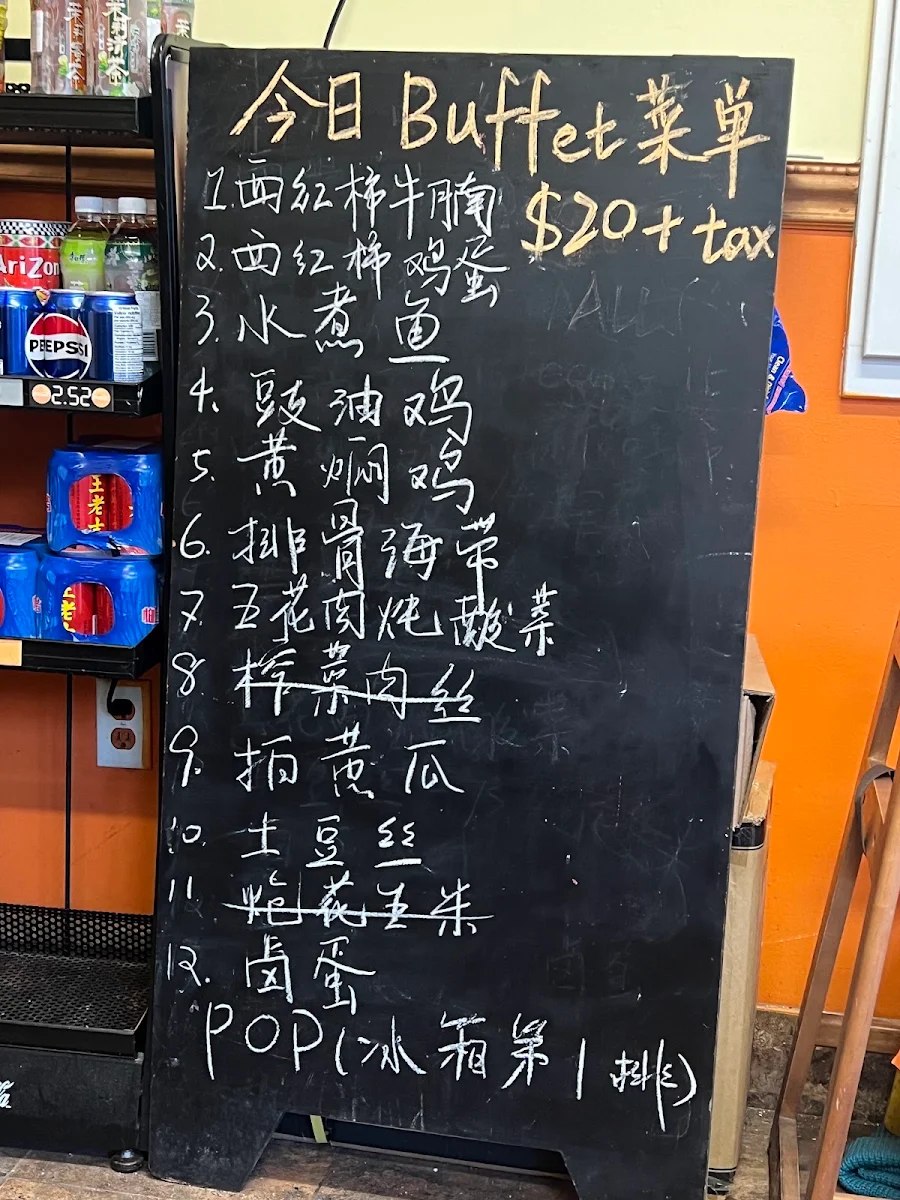 今日Buffet菜单
$20+tax
1.西红柿牛腩
2.西红柿鸡蛋
3.水煮鱼
4.豉油鸡
5.黄焖鸡
6.排骨海带
7.五花肉炖酸菜
8.榨菜肉丝
9.拍黄瓜
10.土豆丝
11.
12.卤蛋
POP(冰箱第1排)
茉莉清茶
AriZon
PEPSI
2.52
王老吉